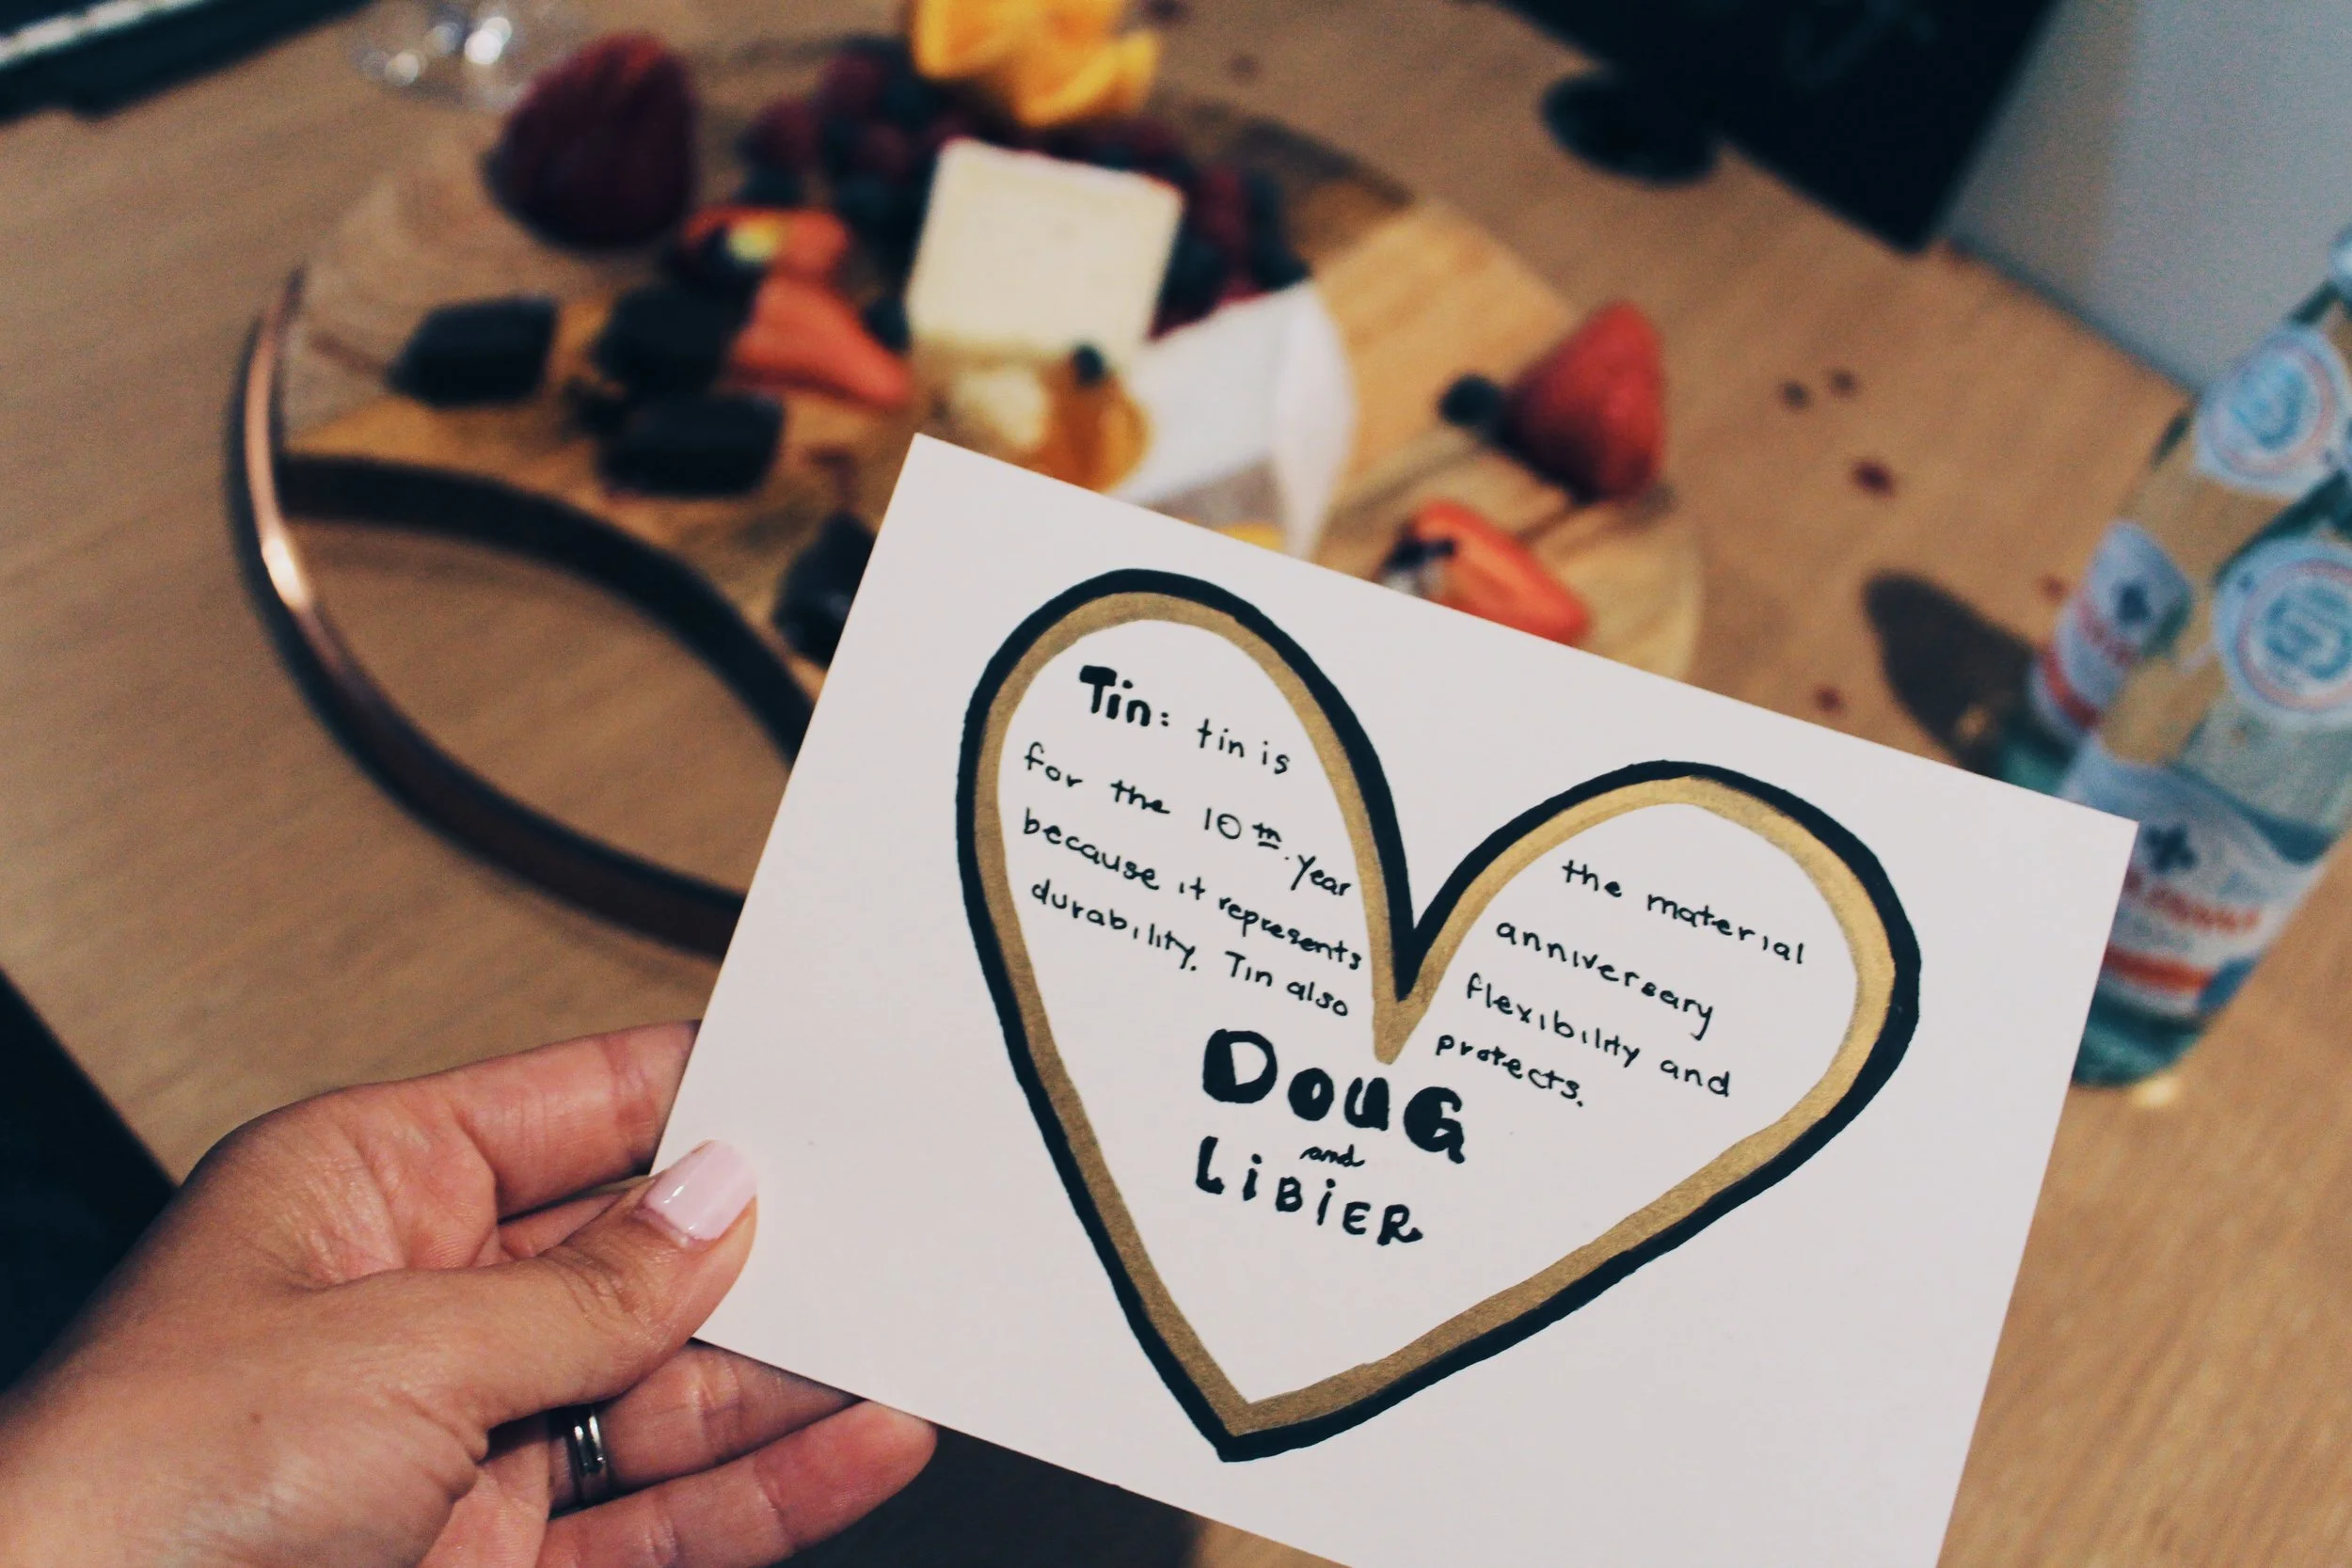 Tin: tin is the material
for the 10th. Year anniversary
because it represents flexibility and
durability. Tin also protects.
DOUG
and
LiBiER